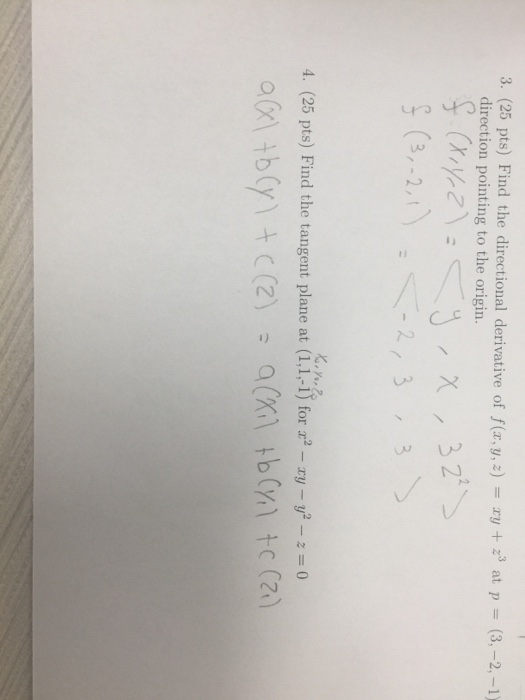 3. (25 pts) Find the directional derivative of f(x, y, z) = xy + z³ at p = (3, −2, −1)
direction pointing to the origin.
f (x, y, z) = < y , x , 3z² >
f (3, -2, 1) = < -2, 3 , 3 >
4. (25 pts) Find the tangent plane at (1,1,-1) for x² − xy − y² − z = 0
a(x) + b(y) + c(z) = a(x₁) + b(y₁) + c(z₁)